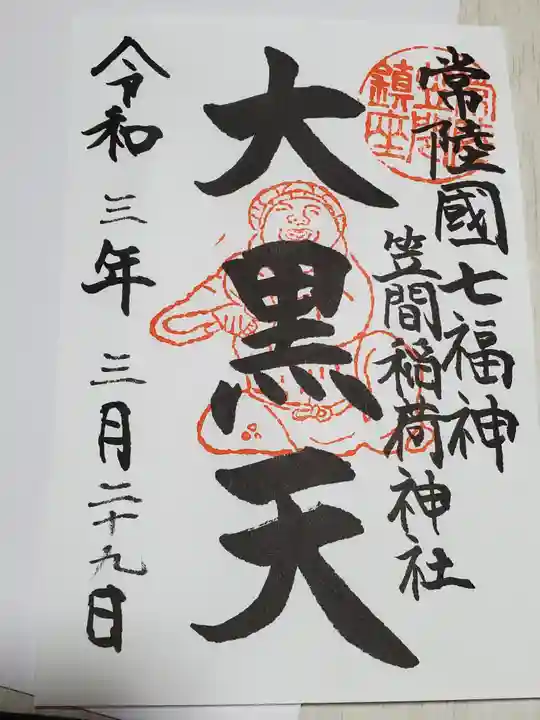 常陸國七福神
笠間稲荷神社
大黒天
令和三年三月二十九日
鎮座